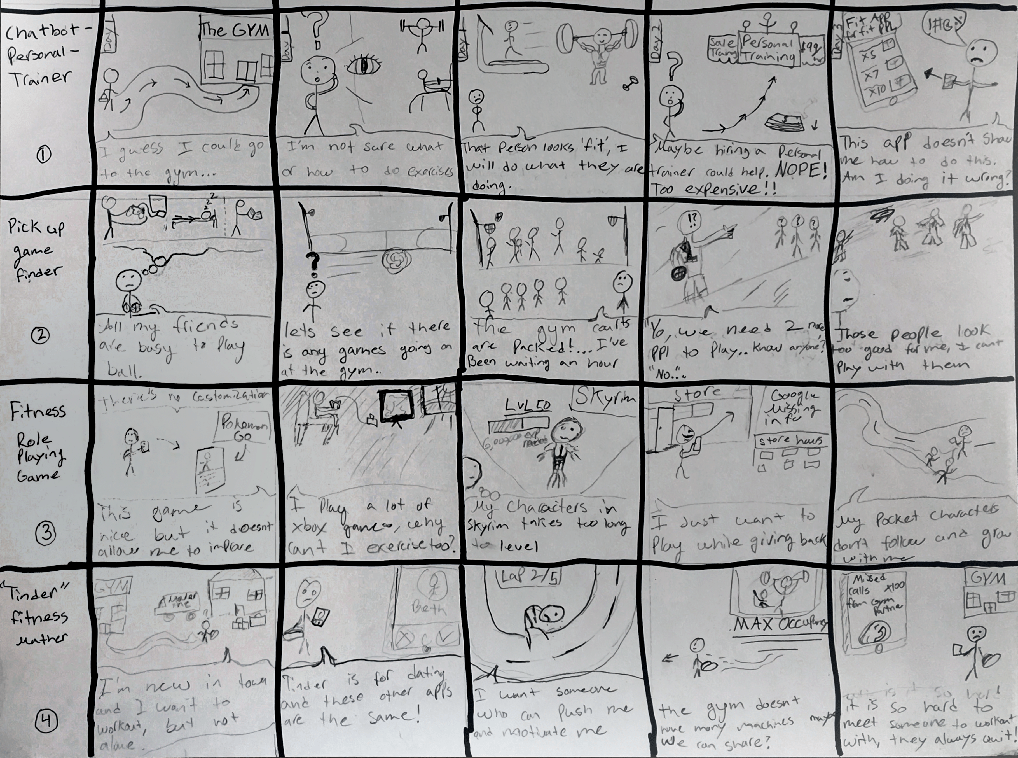 Chatbot-
Personal-
Trainer
①
Day 1
The GYM
I guess I could go
to the gym...
Day 1
?
I'm not sure what
or how to do exercises
Day 2
That Person looks 'fit', I
will do what they are
doing.
Day 2
?
Sale
Personal
Training
$99
Maybe hiring a Personal
trainer could help. NOPE!
Too expensive!!
Day 3
Fit App
X5
X7
X10
!#@
This app doesn't show
me how to do this.
Am I doing it wrong?
Pick up
game
finder
②
All my friends
are busy to play
ball.
?
lets see if there
is any games going on
at the gym..
The gym courts
are Packed!... I've
Been waiting an hour
!?
"Yo, we need 2 more
PPl to Play.. know anyone?
"No..."
Those people look
too good for me, I cant
Play with them
Fitness
Role
Playing
Game
③
There's no customization
Pokemon
GO
This game is
nice but it doesnt
allow me to improve
I Play a lot of
xbox games, why
can't I exercise too?
LvL 50
Skyrim
My characters in
Skyrim takes too long
to level
Store
Google
Missing
info
Store hours
I Just want to
Play while giving back
My Pocket Characters
don't follow and grow
with me
"Tinder"
fitness
④
GYM
I'm new in town
and I want to
workout, but not
alone.
Beth
Tinder is for dating
and these other apps
are the same!
Lap 2/5
I want someone
who can push me
and motivate me
MAX Occupancy
the gym doesn't
have many machines maybe
we can share?
Missed
calls x100
from Gym
Partner
GYM
it is so hard to
meet someone to workout
with, they always quit!